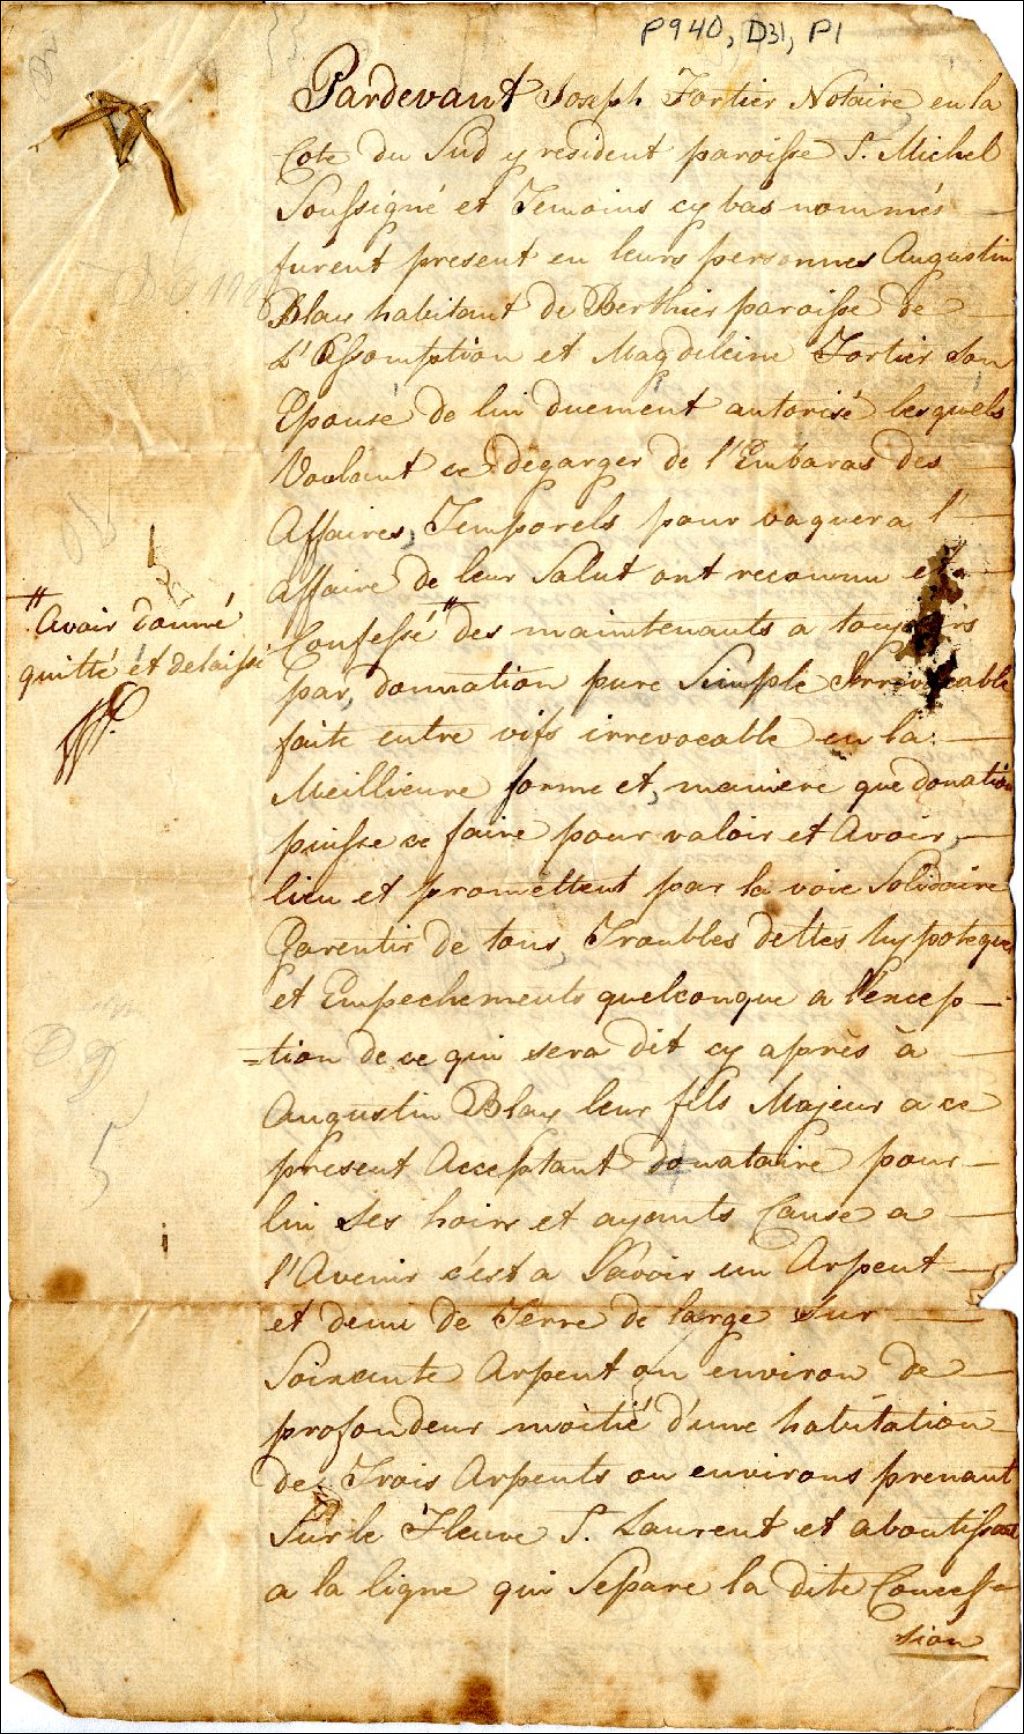 P940, D31, P1
Pardevant Joseph Fortier Notaire en la
Cote du Sud y resident paroisse S. Michel
Soussigné et Temoins cy bas nommés
furent present en leurs personnes Augustin
Blay habitant de Berthier paroisse de
L'Assomption et Magdeleine Fortier Son
Epouse de lui duement autorisé lesquels
Voulant ce degarger de l'Embaras des
Affaires Temporels pour vaquer a l'
affaire de leur Salut ont reconnu et
Confessé " des maintenants a toujours
par donnation pure Simple Irrevocable
faite entre vifs irrevocable en la
Meillieure forme et maniere que donation
puisse ce faire pour valoir et Avoir
lieu et promettent par la voie Solidaire
Garentir de tous Troubles dettes hypoteques
et Empechements quelconque a l'excep
=tion de ce qui sera dit cy après à
Augustin Blay leur fils Majeur a ce
present Acceptant donataire pour
lui Ses hoirs et ayants Cause a
l'Avenir c'est a Savoir un Arpent
et demi de Terre de large Sur
Soixante Arpent ou environ de
profondeur moitié d'une habitation
de Trois Arpents ou environs prenant
Sur le Fleuve S. Laurent et aboutissant
a la ligne qui Separe la dite Conces=
sion
" Avoir donné
quitté et delaissé